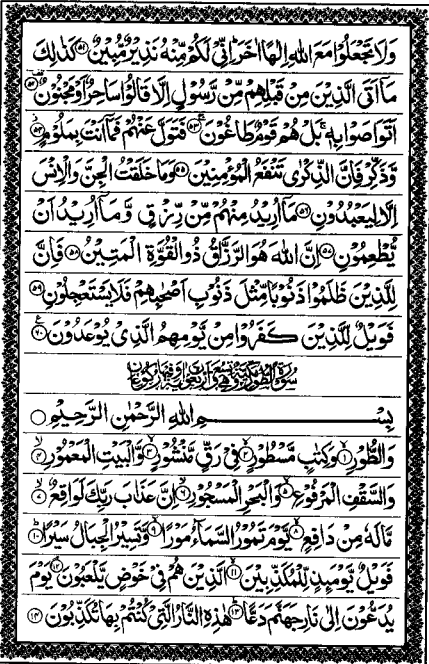 وَلَا تَجْعَلُوا مَعَ اللهِ اِلٰهًا اٰخَرَ اِنِّیْ لَكُمْ مِّنْهُ نَذِیْرٌ مُّبِیْنٌ ۝۵۱ كَذٰلِكَ
مَاۤ اَتَی الَّذِیْنَ مِنْ قَبْلِهِمْ مِّنْ رَّسُوْلٍ اِلَّا قَالُوْا سَاحِرٌ اَوْ مَجْنُوْنٌ ۝۵۲
اَتَوَاصَوْا بِهٖ بَلْ هُمْ قَوْمٌ طَاغُوْنَ ۝۵۳ فَتَوَلَّ عَنْهُمْ فَمَاۤ اَنْتَ بِمَلُوْمٍ ۝۵۴
وَّذَكِّرْ فَاِنَّ الذِّكْرٰی تَنْفَعُ الْمُؤْمِنِیْنَ ۝۵۵ وَمَا خَلَقْتُ الْجِنَّ وَالْاِنْسَ
اِلَّا لِیَعْبُدُوْنِ ۝۵۶ مَاۤ اُرِیْدُ مِنْهُمْ مِّنْ رِّزْقٍ وَّمَاۤ اُرِیْدُ اَنْ
یُّطْعِمُوْنِ ۝۵۷ اِنَّ اللهَ هُوَ الرَّزَّاقُ ذُو الْقُوَّةِ الْمَتِیْنُ ۝۵۸ فَاِنَّ
لِلَّذِیْنَ ظَلَمُوْا ذَنُوْبًا مِّثْلَ ذَنُوْبِ اَصْحٰبِهِمْ فَلَا یَسْتَعْجِلُوْنِ ۝۵۹
فَوَیْلٌ لِّلَّذِیْنَ كَفَرُوْا مِنْ یَّوْمِهِمُ الَّذِیْ یُوْعَدُوْنَ ۝۶۰
سُوْرَةُ الطُّوْرِ مَكِّیَّةٌ وَّهِیَ تِسْعٌ وَّاَرْبَعُوْنَ اٰیَةً وَّفِیْهَا رُكُوْعَانِ
بِسْمِ اللهِ الرَّحْمٰنِ الرَّحِیْمِ
وَالطُّوْرِ ۝۱ وَكِتٰبٍ مَّسْطُوْرٍ ۝۲ فِیْ رَقٍّ مَّنْشُوْرٍ ۝۳ وَّالْبَیْتِ الْمَعْمُوْرِ ۝۴
وَالسَّقْفِ الْمَرْفُوْعِ ۝۵ وَالْبَحْرِ الْمَسْجُوْرِ ۝۶ اِنَّ عَذَابَ رَبِّكَ لَوَاقِعٌ ۝۷
مَّا لَهٗ مِنْ دَافِعٍ ۝۸ یَّوْمَ تَمُوْرُ السَّمَآءُ مَوْرًا ۝۹ وَّتَسِیْرُ الْجِبَالُ سَیْرًا ۝۱۰
فَوَیْلٌ یَّوْمَىِٕذٍ لِّلْمُكَذِّبِیْنَ ۝۱۱ الَّذِیْنَ هُمْ فِیْ خَوْضٍ یَّلْعَبُوْنَ ۝۱۲ یَوْمَ
یُدَعُّوْنَ اِلٰی نَارِ جَهَنَّمَ دَعًّا ۝۱۳ هٰذِهِ النَّارُ الَّتِیْ كُنْتُمْ بِهَا تُكَذِّبُوْنَ ۝۱۴